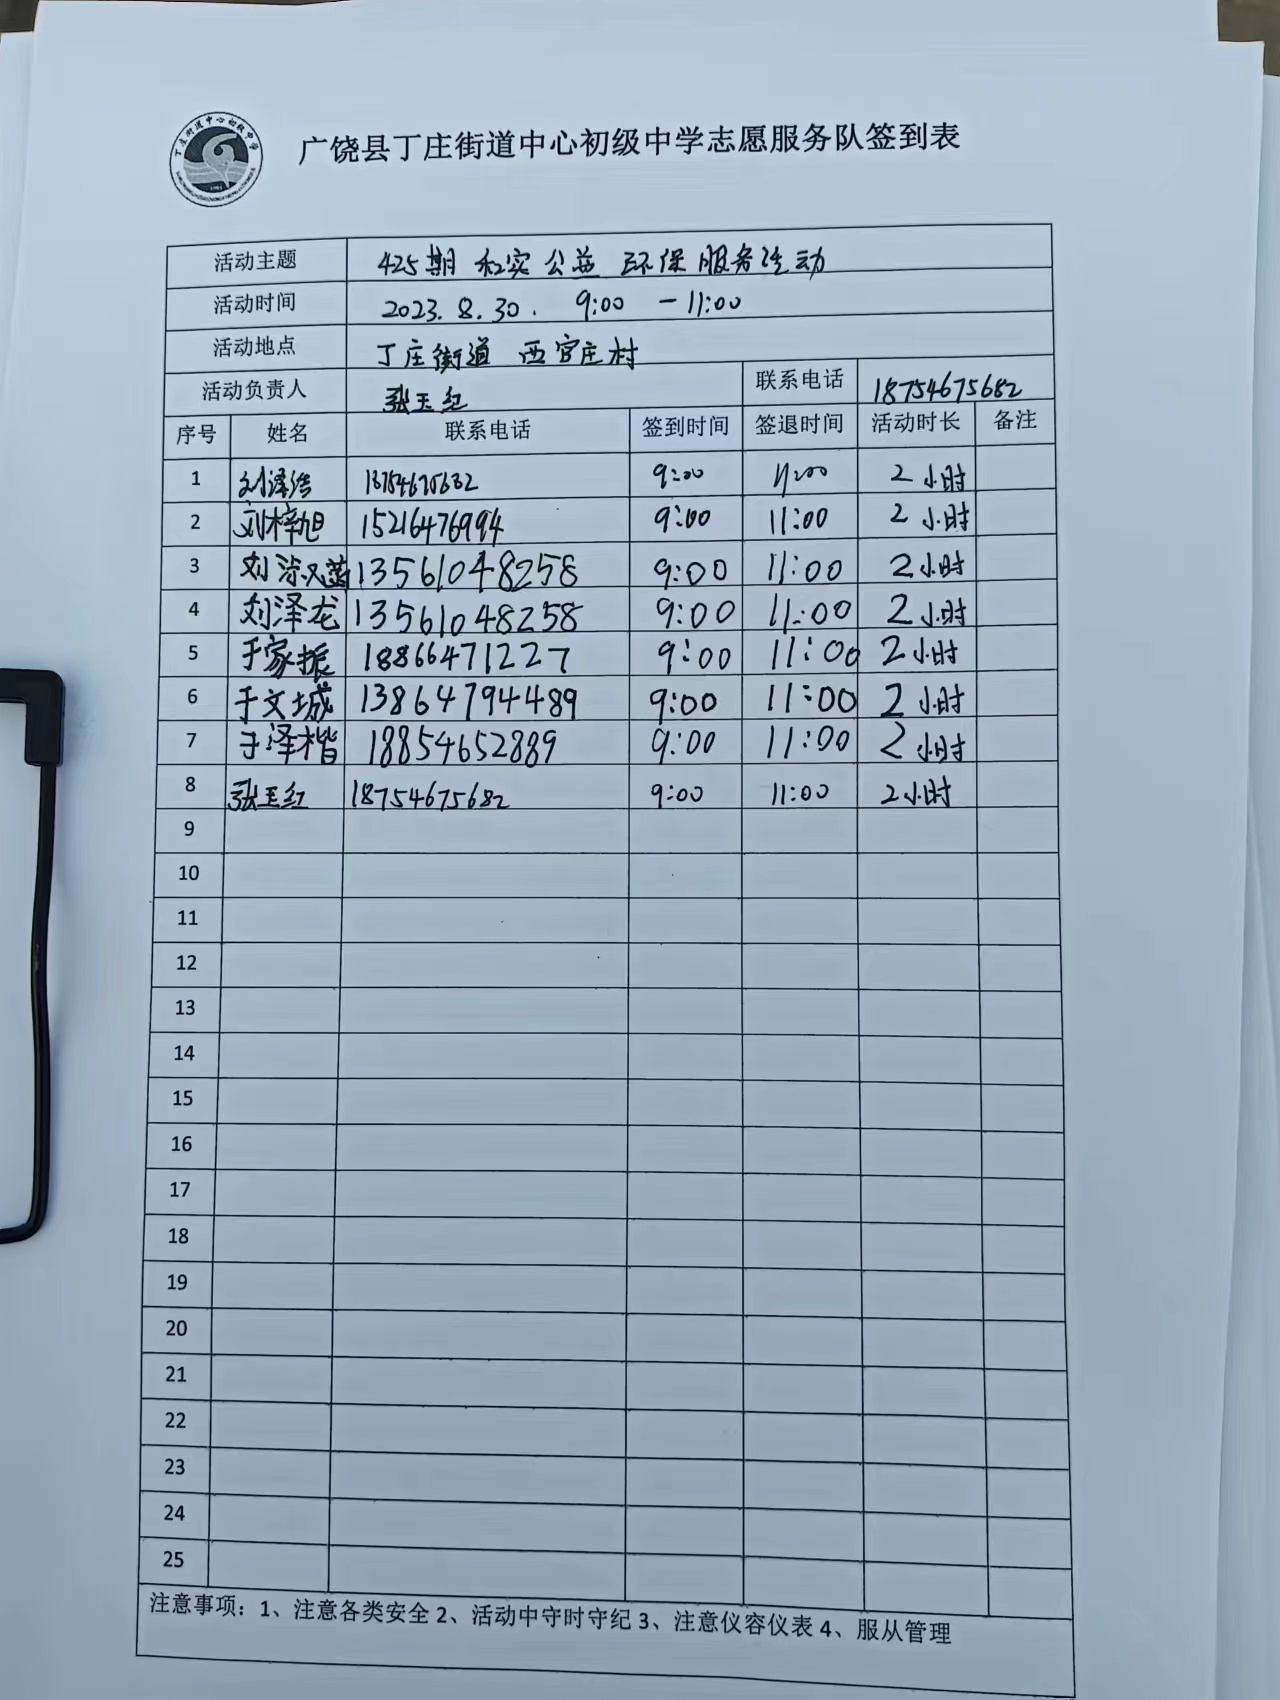 丁庄街道中心初级中学
广饶县丁庄街道中心初级中学志愿服务队签到表
活动主题 425期 和实 公益 环保 服务活动
活动时间 2023.8.30. 9:00 - 11:00
活动地点 丁庄街道 西官庄村
活动负责人 张玉红 联系电话 18754675682
序号 姓名 联系电话 签到时间 签退时间 活动时长 备注
1 刘泽浩 9:00 11:00 2小时
2 刘梓旭 15216476994 9:00 11:00 2小时
3 刘 13561048258 9:00 11:00 2小时
4 刘泽龙 13561048258 9:00 11:00 2小时
5 于家振 18866471227 9:00 11:00 2小时
6 于文城 13864794489 9:00 11:00 2小时
7 于泽楷 18854652889 9:00 11:00 2小时
8 张玉红 18754675682 9:00 11:00 2小时
9
10
11
12
13
14
15
16
17
18
19
20
21
22
23
24
25
注意事项：1、注意各类安全 2、活动中守时守纪 3、注意仪容仪表 4、服从管理